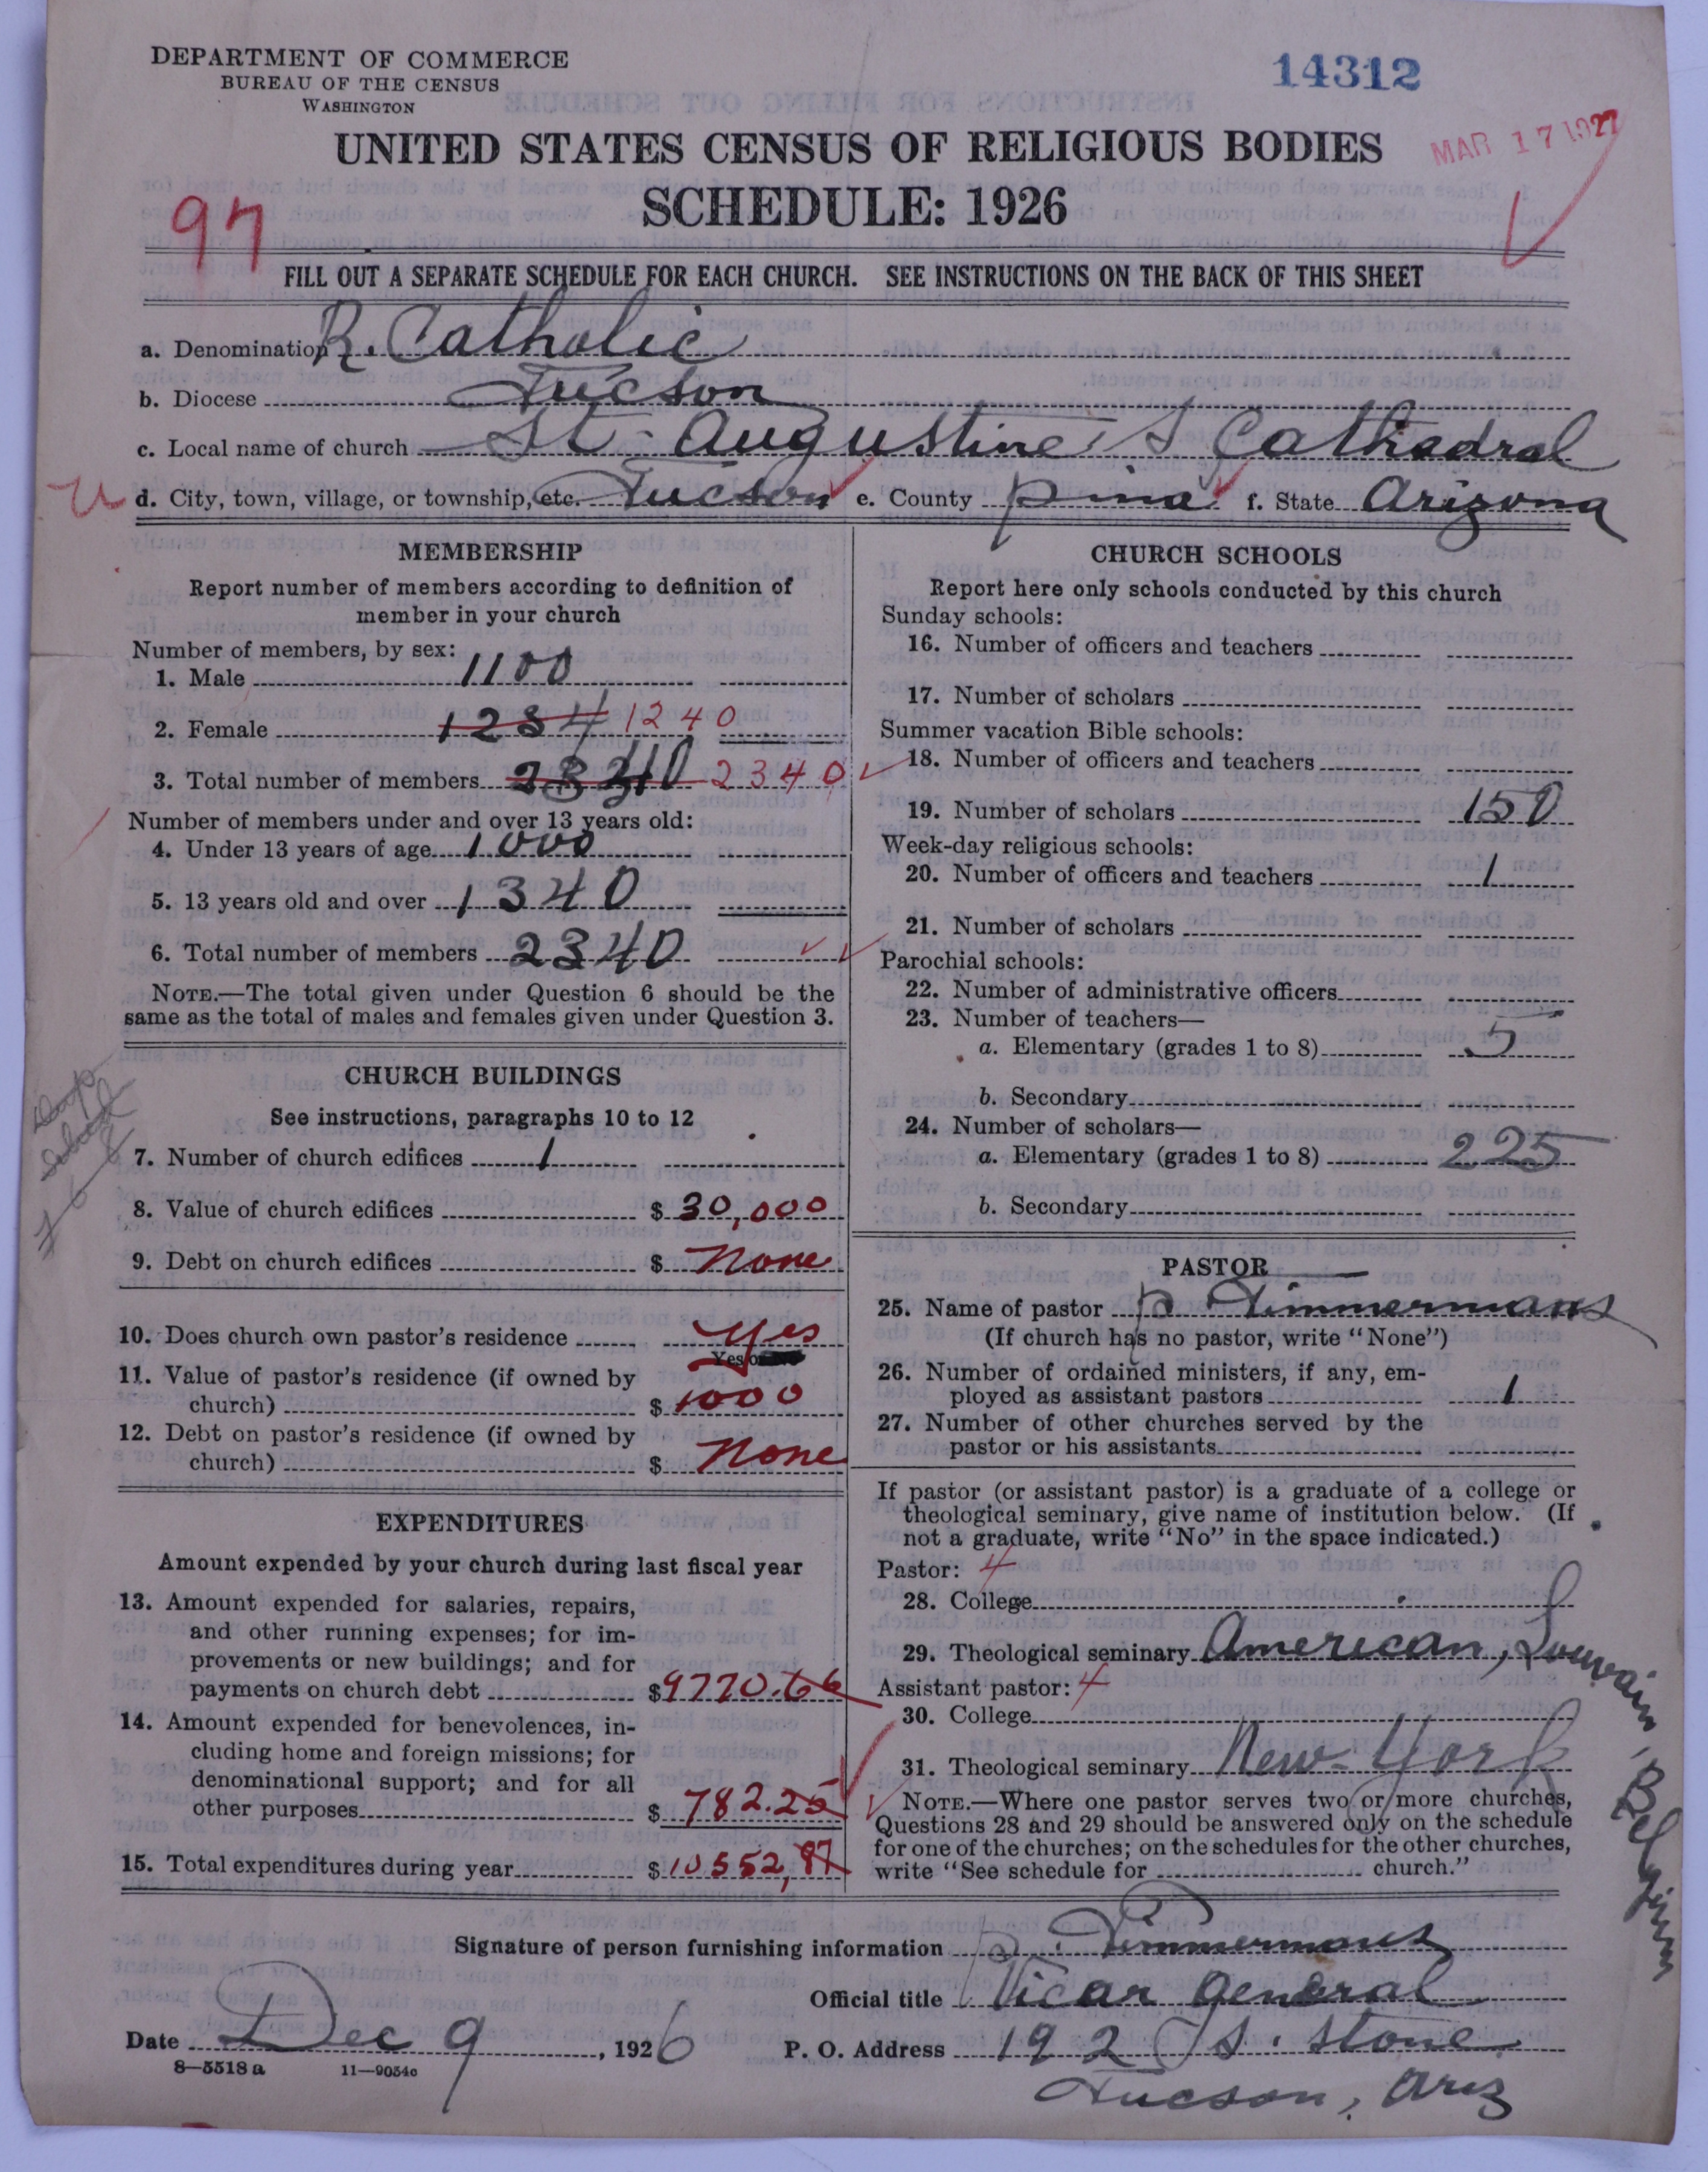 DEPARTMENT OF COMMERCE
BUREAU OF THE CENSUS
WASHINGTON
14312
MAR 17 1927
UNITED STATES CENSUS OF RELIGIOUS BODIES
SCHEDULE: 1926
97
FILL OUT A SEPARATE SCHEDULE FOR EACH CHURCH. SEE INSTRUCTIONS ON THE BACK OF THIS SHEET
a. Denomination R. Catholic
b. Diocese Tucson
c. Local name of church St. Augustine's Cathedral
d. City, town, village, or township, etc. Tucson e. County Pima f. State Arizona
MEMBERSHIP
Report number of members according to definition of
member in your church
Number of members, by sex:
1. Male 1100
2. Female 1234 1240
3. Total number of members 2340
Number of members under and over 13 years old:
4. Under 13 years of age 1000
5. 13 years old and over 1340
6. Total number of members 2340
NOTE.—The total given under Question 6 should be the
same as the total of males and females given under Question 3.
CHURCH BUILDINGS
See instructions, paragraphs 10 to 12
7. Number of church edifices 1
8. Value of church edifices $ 30,000
9. Debt on church edifices $ None
10. Does church own pastor's residence Yes
Yes or
11. Value of pastor's residence (if owned by
church) $ 1000
12. Debt on pastor's residence (if owned by
church) $ None
EXPENDITURES
Amount expended by your church during last fiscal year
13. Amount expended for salaries, repairs,
and other running expenses; for im-
provements or new buildings; and for
payments on church debt $ 9770.66
14. Amount expended for benevolences, in-
cluding home and foreign missions; for
denominational support; and for all
other purposes $ 782.25
15. Total expenditures during year $ 10552,87
CHURCH SCHOOLS
Report here only schools conducted by this church
Sunday schools:
16. Number of officers and teachers
17. Number of scholars
Summer vacation Bible schools:
18. Number of officers and teachers
19. Number of scholars 150
Week-day religious schools:
20. Number of officers and teachers 1
21. Number of scholars
Parochial schools:
22. Number of administrative officers
23. Number of teachers—
a. Elementary (grades 1 to 8) 5
b. Secondary
24. Number of scholars—
a. Elementary (grades 1 to 8) 225
b. Secondary
PASTOR
25. Name of pastor P. Timmermans
(If church has no pastor, write "None")
26. Number of ordained ministers, if any, em-
ployed as assistant pastors 1
27. Number of other churches served by the
pastor or his assistants
If pastor (or assistant pastor) is a graduate of a college or
theological seminary, give name of institution below. (If
not a graduate, write "No" in the space indicated.)
Pastor: 4
28. College
29. Theological seminary American, Louvain, Belgium
Assistant pastor: 4
30. College
31. Theological seminary New-York
NOTE.—Where one pastor serves two or more churches,
Questions 28 and 29 should be answered only on the schedule
for one of the churches; on the schedules for the other churches,
write "See schedule for church."
Signature of person furnishing information P. Timmermans
Official title Vicar General
Date Dec 9, 1926 P. O. Address 192 S. Stone
8-5518 a 11-9054c
Tucson, Ariz